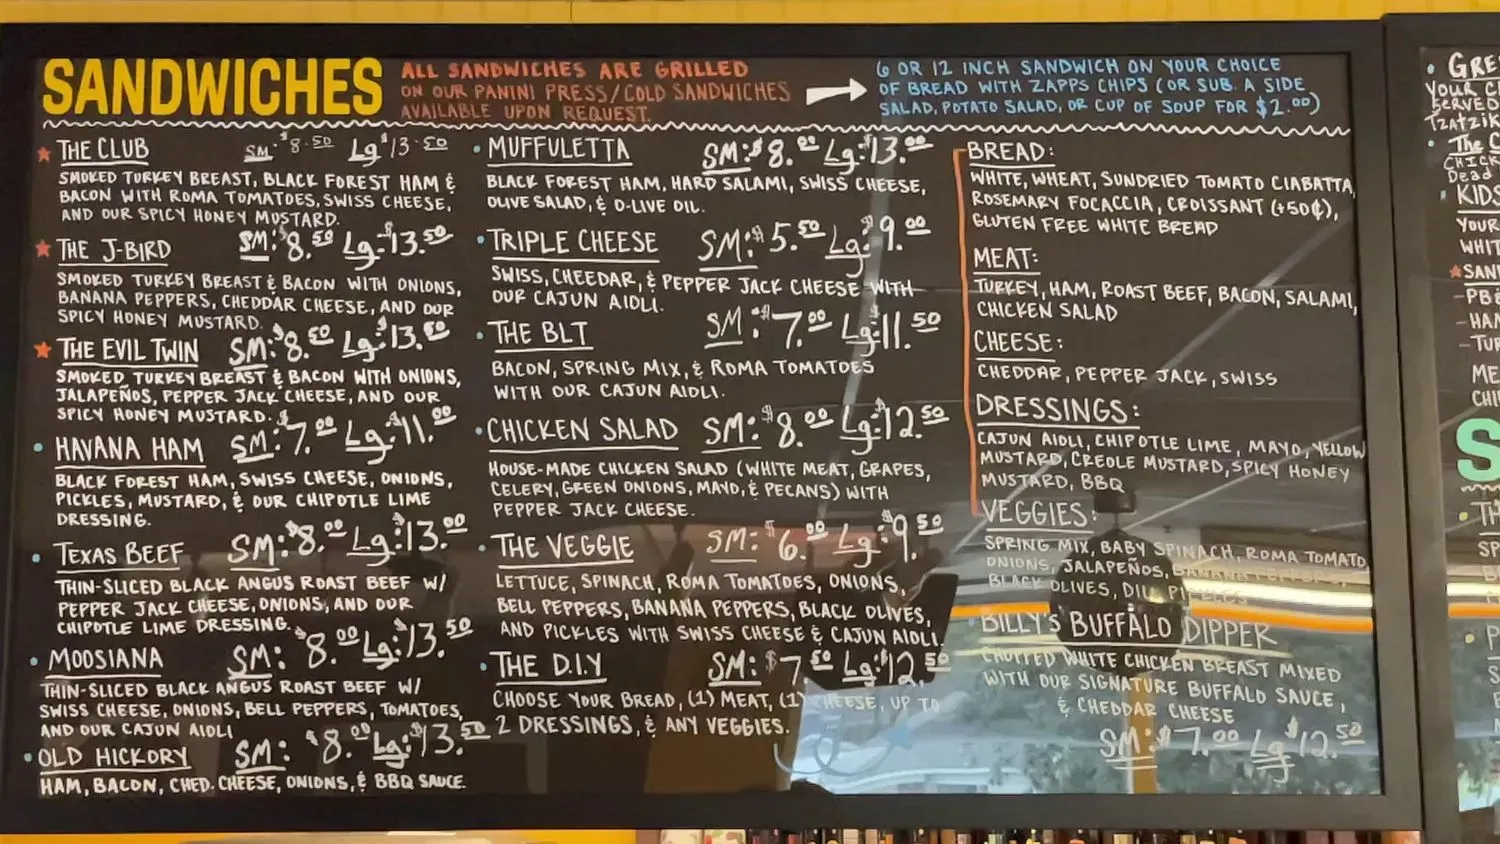 SANDWICHES
ALL SANDWICHES ARE GRILLED
ON OUR PANINI PRESS/COLD SANDWICHES
AVAILABLE UPON REQUEST.
6 OR 12 INCH SANDWICH ON YOUR CHOICE
OF BREAD WITH ZAPPS CHIPS (OR SUB. A SIDE
SALAD, POTATO SALAD, OR CUP OF SOUP FOR $2.00)
THE CLUB SM: $8.50 Lg $13.50
SMOKED TURKEY BREAST, BLACK FOREST HAM &
BACON WITH ROMA TOMATOES, SWISS CHEESE,
AND OUR SPICY HONEY MUSTARD.
THE J-BIRD SM: $8.50 Lg: $13.50
SMOKED TURKEY BREAST & BACON WITH ONIONS,
BANANA PEPPERS, CHEDDAR CHEESE, AND OUR
SPICY HONEY MUSTARD.
THE EVIL TWIN SM: $8.50 Lg: $13.50
SMOKED TURKEY BREAST & BACON WITH ONIONS,
JALAPEÑOS, PEPPER JACK CHEESE, AND OUR
SPICY HONEY MUSTARD.
HAVANA HAM SM: $7.00 Lg: $11.00
BLACK FOREST HAM, SWISS CHEESE, ONIONS,
PICKLES, MUSTARD, & OUR CHIPOTLE LIME
DRESSING.
TEXAS BEEF SM: $8.00 Lg: $13.00
THIN-SLICED BLACK ANGUS ROAST BEEF W/
PEPPER JACK CHEESE, ONIONS, AND OUR
CHIPOTLE LIME DRESSING.
MOOSIANA SM: $8.00 Lg: $13.50
THIN-SLICED BLACK ANGUS ROAST BEEF W/
SWISS CHEESE, ONIONS, BELL PEPPERS, TOMATOES,
AND OUR CAJUN AIOLI
OLD HICKORY SM: $8.00 Lg: $13.50
HAM, BACON, CHED. CHEESE, ONIONS, & BBQ SAUCE.
MUFFULETTA SM: $8.00 Lg: $13.00
BLACK FOREST HAM, HARD SALAMI, SWISS CHEESE,
OLIVE SALAD, & O-LIVE OIL.
TRIPLE CHEESE SM: $5.50 Lg: $9.00
SWISS, CHEEDAR, & PEPPER JACK CHEESE WITH
OUR CAJUN AIOLI.
THE BLT SM: $7.00 Lg: $11.50
BACON, SPRING MIX, & ROMA TOMATOES
WITH OUR CAJUN AIOLI.
CHICKEN SALAD SM: $8.00 Lg: $12.50
HOUSE-MADE CHICKEN SALAD (WHITE MEAT, GRAPES,
CELERY, GREEN ONIONS, MAYO, & PECANS) WITH
PEPPER JACK CHEESE.
THE VEGGIE SM: $6.00 Lg: $9.50
LETTUCE, SPINACH, ROMA TOMATOES, ONIONS,
BELL PEPPERS, BANANA PEPPERS, BLACK OLIVES,
AND PICKLES WITH SWISS CHEESE & CAJUN AIOLI.
THE D.I.Y SM: $7.50 Lg: $12.50
CHOOSE YOUR BREAD, (1) MEAT, (1) CHEESE, UP TO
2 DRESSINGS, & ANY VEGGIES.
BREAD:
WHITE, WHEAT, SUNDRIED TOMATO CIABATTA,
ROSEMARY FOCACCIA, CROISSANT (+50¢),
GLUTEN FREE WHITE BREAD
MEAT:
TURKEY, HAM, ROAST BEEF, BACON, SALAMI,
CHICKEN SALAD
CHEESE:
CHEDDAR, PEPPER JACK, SWISS
DRESSINGS:
CAJUN AIOLI, CHIPOTLE LIME, MAYO, YELLOW
MUSTARD, CREOLE MUSTARD, SPICY HONEY
MUSTARD, BBQ
VEGGIES:
SPRING MIX, BABY SPINACH, ROMA TOMATO
ONIONS, JALAPEÑOS, BANANA PEPPERS,
BLACK OLIVES, DILL PICKLES
BILLY'S BUFFALO DIPPER
CHOPPED WHITE CHICKEN BREAST MIXED
WITH OUR SIGNATURE BUFFALO SAUCE,
& CHEDDAR CHEESE
SM: $7.00 Lg $12.50
GRE
YOUR C
SERVED
TZATZIK
The C
CHICK
Dead
KIDS
YOUR
WHIT
SAN
-PB&
-HAM
-TUR
ME
CHI
S
TH
SP
P